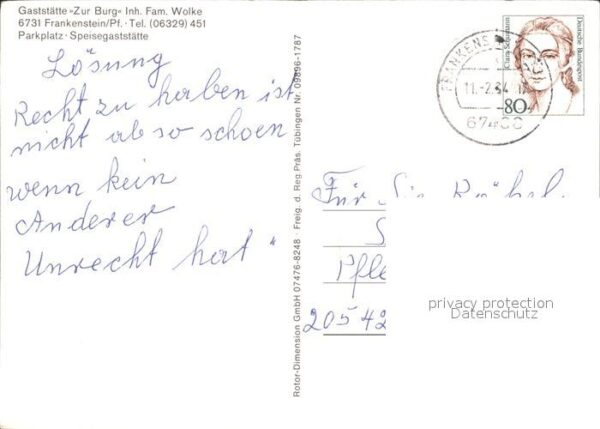 Gaststätte »Zur Burg« Inh. Fam. Wolke
6731 Frankenstein/Pf. · Tel. (06329) 451
Parkplatz · Speisegaststätte
Lösung
Recht zu haben ist
nicht ab so schoen
wenn kein
Anderer
Unrecht hat"
Rotor-Dimension GmbH 07476-8248 · Freig. d. Reg Präs. Tübingen Nr. 09896-1787
Clara Schumann
Deutsche Bundespost
80
FRANKENS
11.-2.94
Für
Pfle
20542
privacy protection
Datenschutz